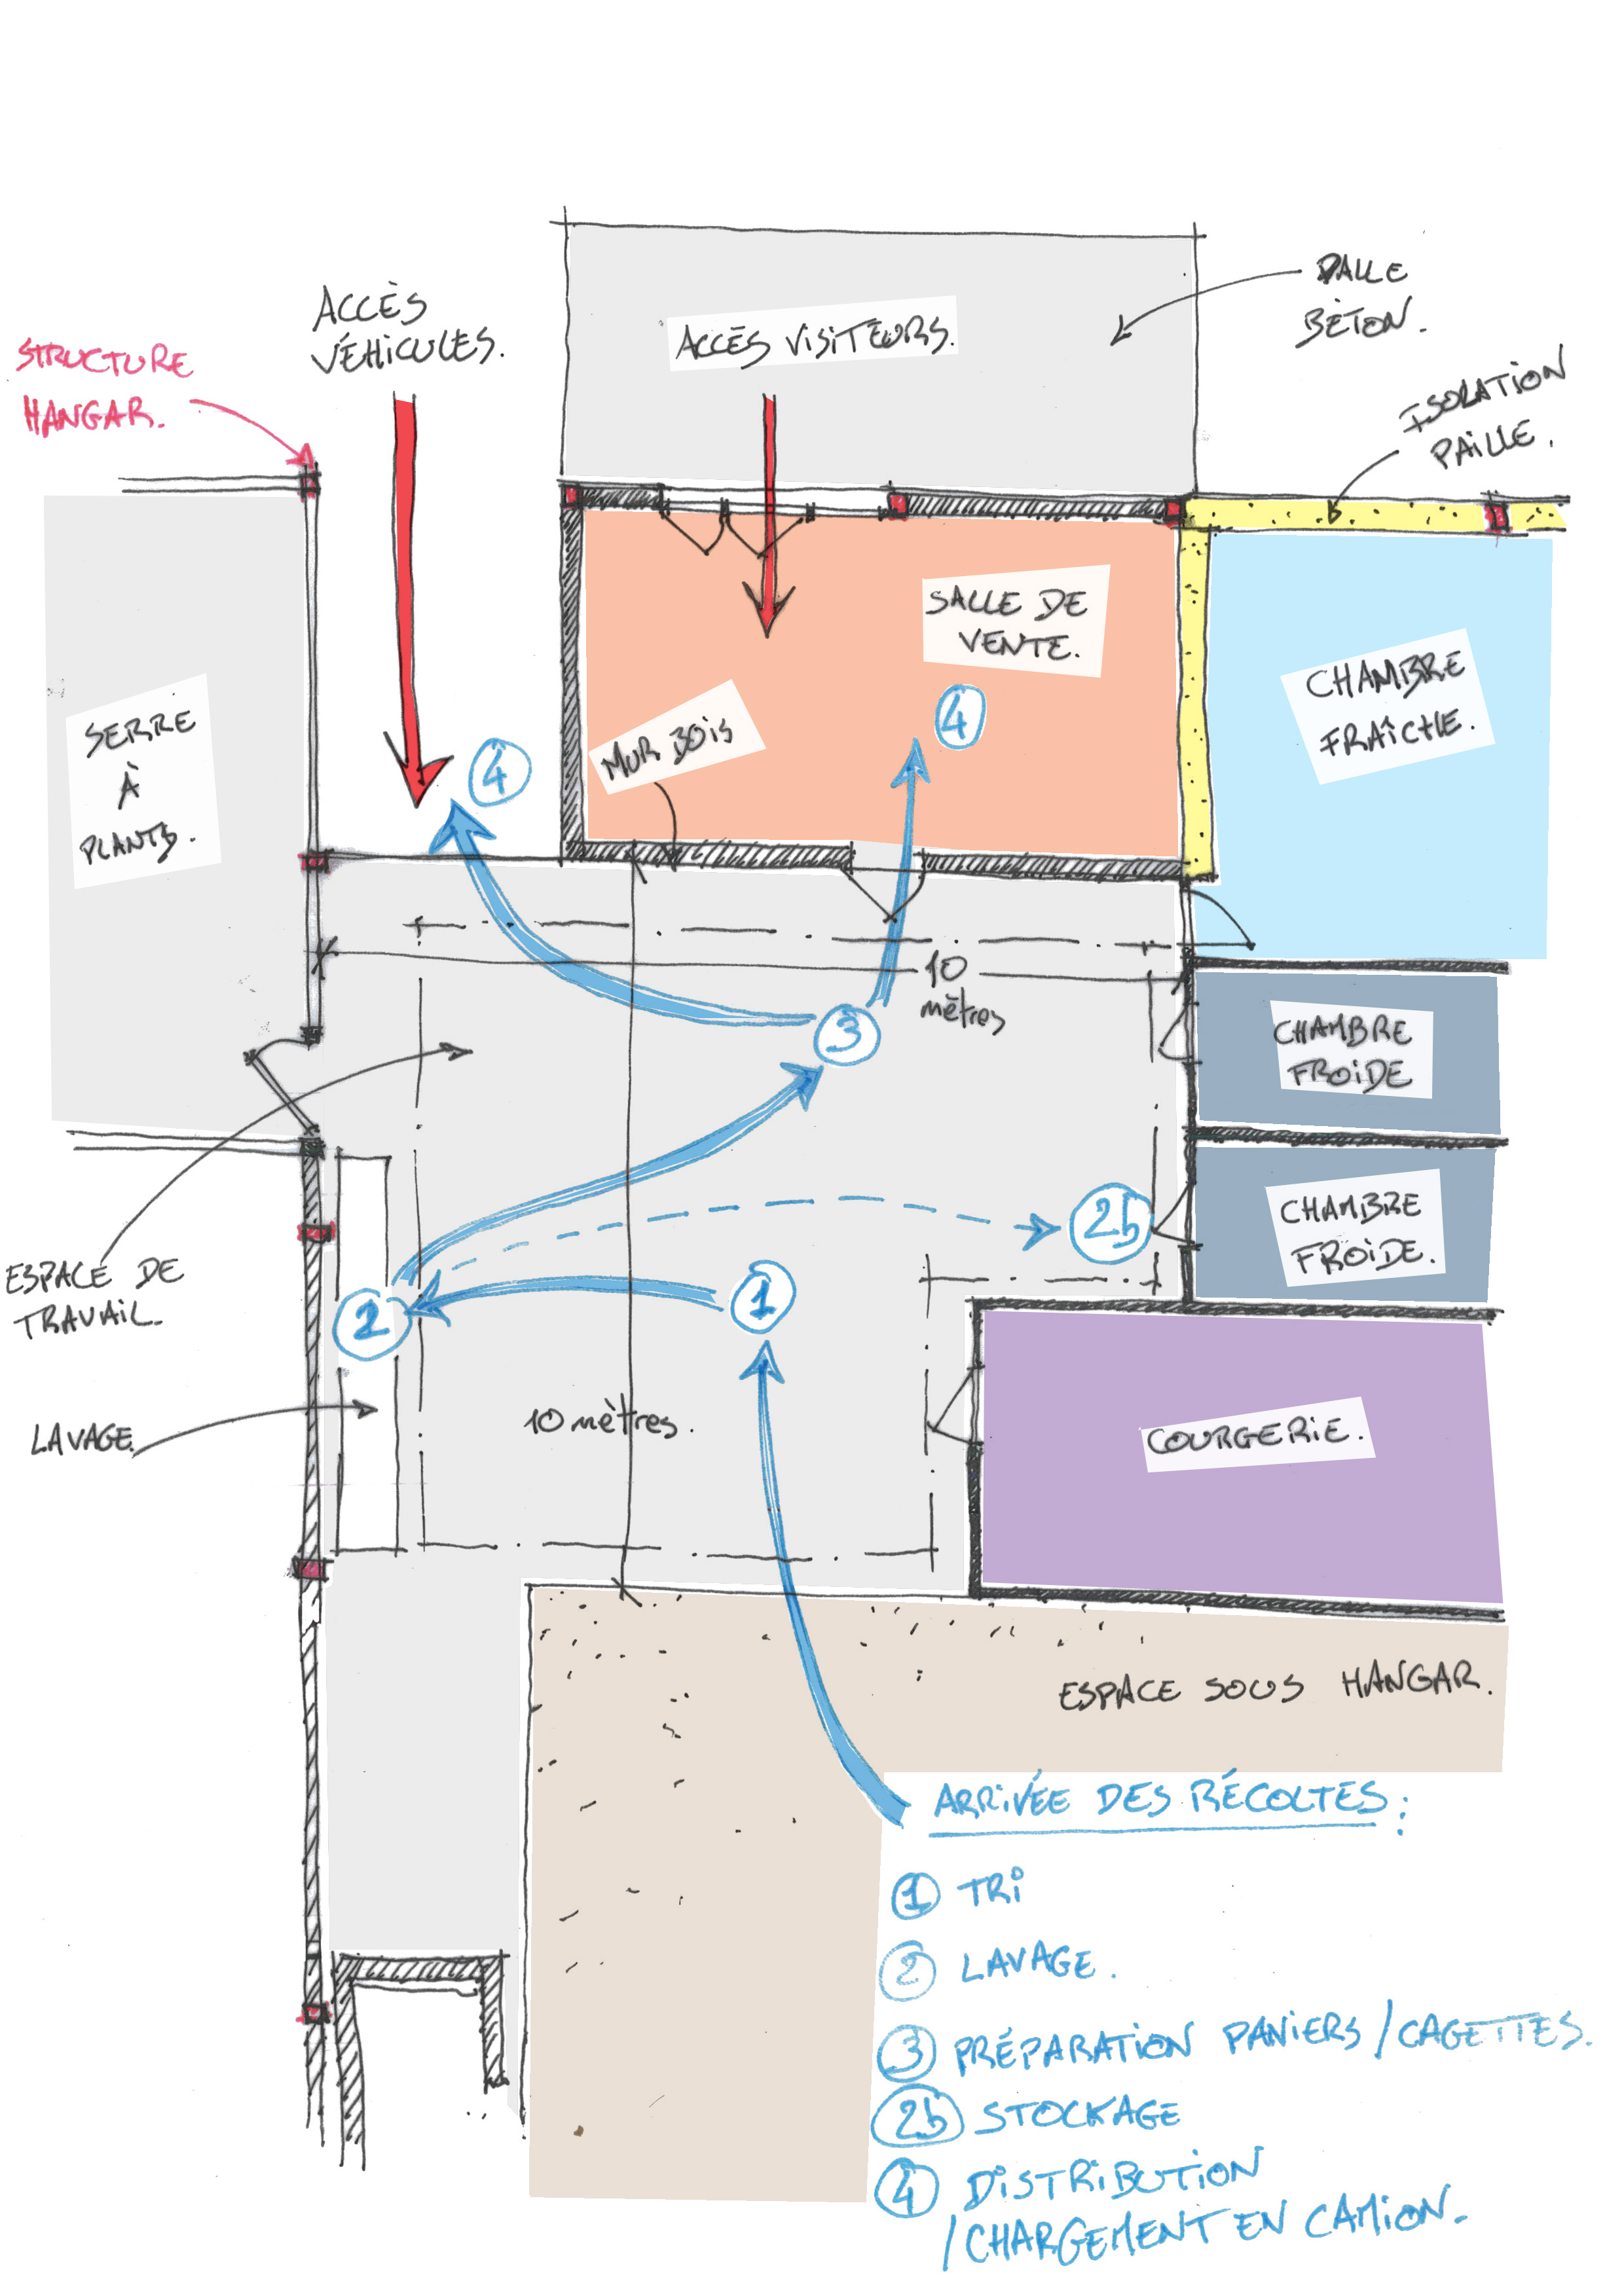 DALLE
BÉTON.
ACCÈS
VÉHICULES.
ACCÈS VISITEURS.
STRUCTURE
HANGAR.
ISOLATION
PAILLE.
SALLE DE
VENTE.
CHAMBRE
FRAÎCHE.
SERRE
À
PLANTS.
MUR BOIS
4
4
10
mètres
3
CHAMBRE
FROIDE
CHAMBRE
FROIDE.
2b
ESPACE DE
TRAVAIL.
1
2
LAVAGE.
10 mètres.
COURGERIE.
ESPACE SOUS HANGAR.
ARRIVÉE DES RÉCOLTES :
1 TRI
2 LAVAGE.
3 PRÉPARATION PANIERS / CAGETTES.
2b STOCKAGE
4 DISTRIBUTION
/CHARGEMENT EN CAMION.